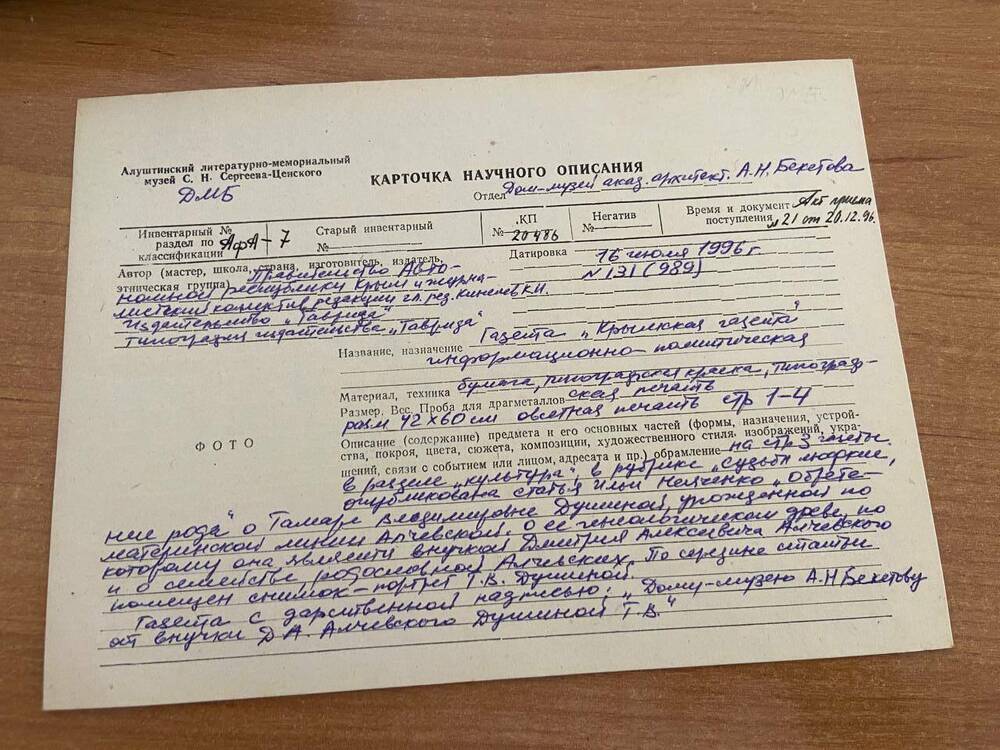 Алуштинский литературно-мемориальный
музей С. Н. Сергеева-Ценского
ДМБ
КАРТОЧКА НАУЧНОГО ОПИСАНИЯ
Отдел Дом-музей акад. архитект. А.Н. Бекетова
Инвентарный №
раздел по
классификации АфА-7
Старый инвентарный
№
КП
№ 20486
Негатив
№
Время и документ Акт приема
поступления №21 от 20.12.96
Автор (мастер, школа, страна, изготовитель, издатель,
этническая группа) Правительство Авто-
номной республики Крым и журна-
листский коллектив редакции гл. ред. Кинелев К.И.
Издательство "Таврида"
типография издательства "Таврида"
Датировка 16 июля 1996 г.
№ 131 (989)
Название, назначение Газета "Крымская газета"
информационно-политическая
Материал, техника бумага, типографская краска, типограф-
ская печать
Размер. Вес. Проба для драгметаллов
разм 42х60 см офсетная печать стр 1-4
ФОТО
Описание (содержание) предмета и его основных частей (формы, назначения, устрой-
ства, покроя, цвета, сюжета, композиции, художественного стиля, изображений, укра-
шений, связи с событием или лицом, адресата и пр.) обрамление на стр 3 газеты
в разделе "культура", в рубрике "судьбы людские,
опубликована статья Ильи Немченко "Обрете-
ние рода" о Тамаре Владимировне Душиной, урожденной по
материнской линии Алчевской, о ее генеологическом древе, по
которому она является внучкой Дмитрия Алексеевича Алчевского
и о семействе, родословной Алчевских. По середине статьи
помещен снимок-портрет Т.В. Душиной.
Газета с дарственной надписью: "Дому-музею А.Н Бекетову
от внучки Д А. Алчевского Душиной Т.В."